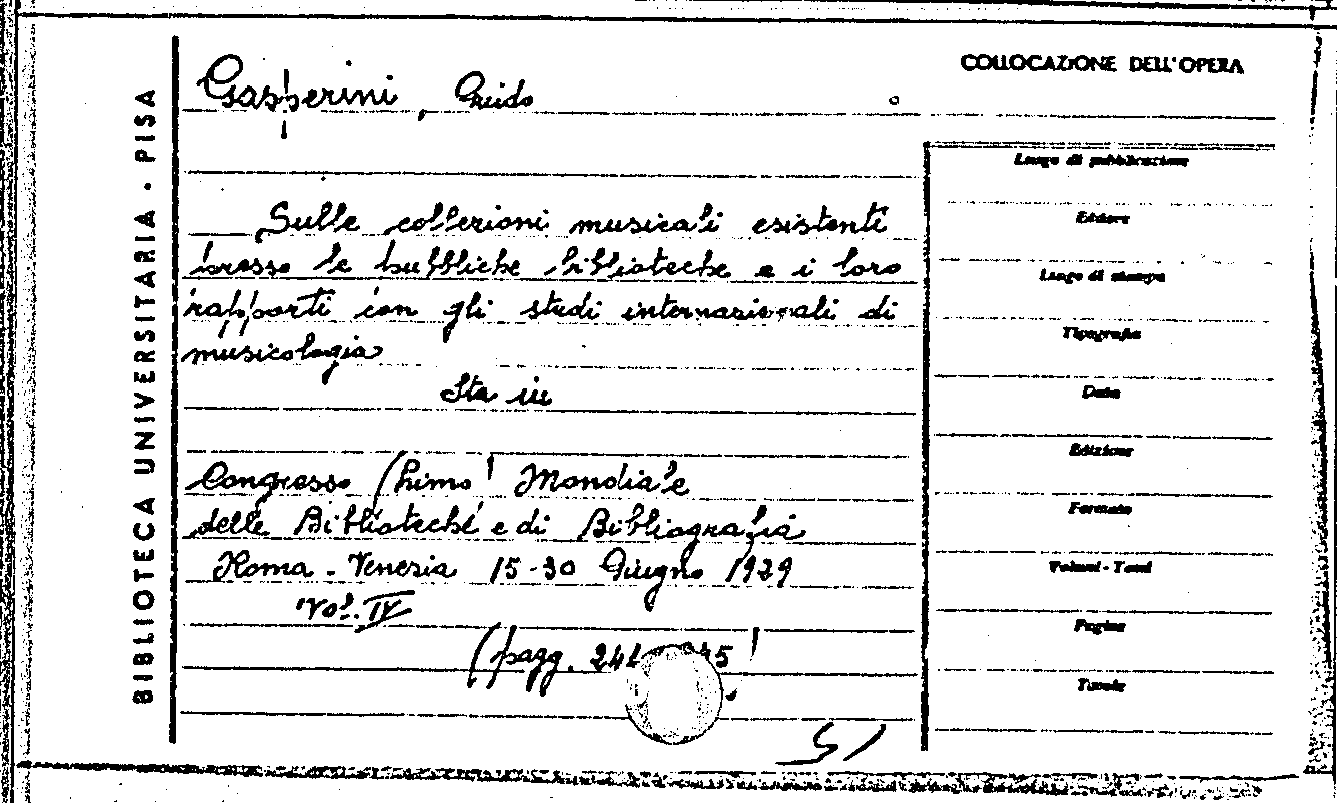 BIBLIOTECA UNIVERSITARIA - PISA
COLLOCAZIONE DELL'OPERA
Gasperini, Guido
Sulle collezioni musicali esistenti
presso le pubbliche biblioteche e i loro
rapporti con gli studi internazionali di
musicologia
Sta in
Congresso Primo Mondiale
delle Biblioteche e di Bibliografia
Roma - Venezia 15-30 Giugno 1929
Vol. IV
(pagg.
Luogo di pubblicazione
Editore
Luogo di stampa
Tipografia
Data
Edizione
Formato
Volumi - Tomi
Pagine
Tavole